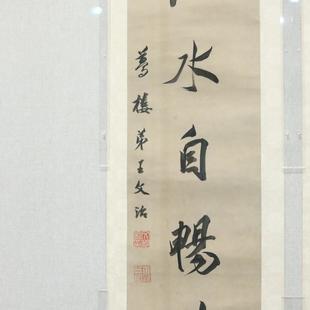 水自暢
夢樓弟王文治